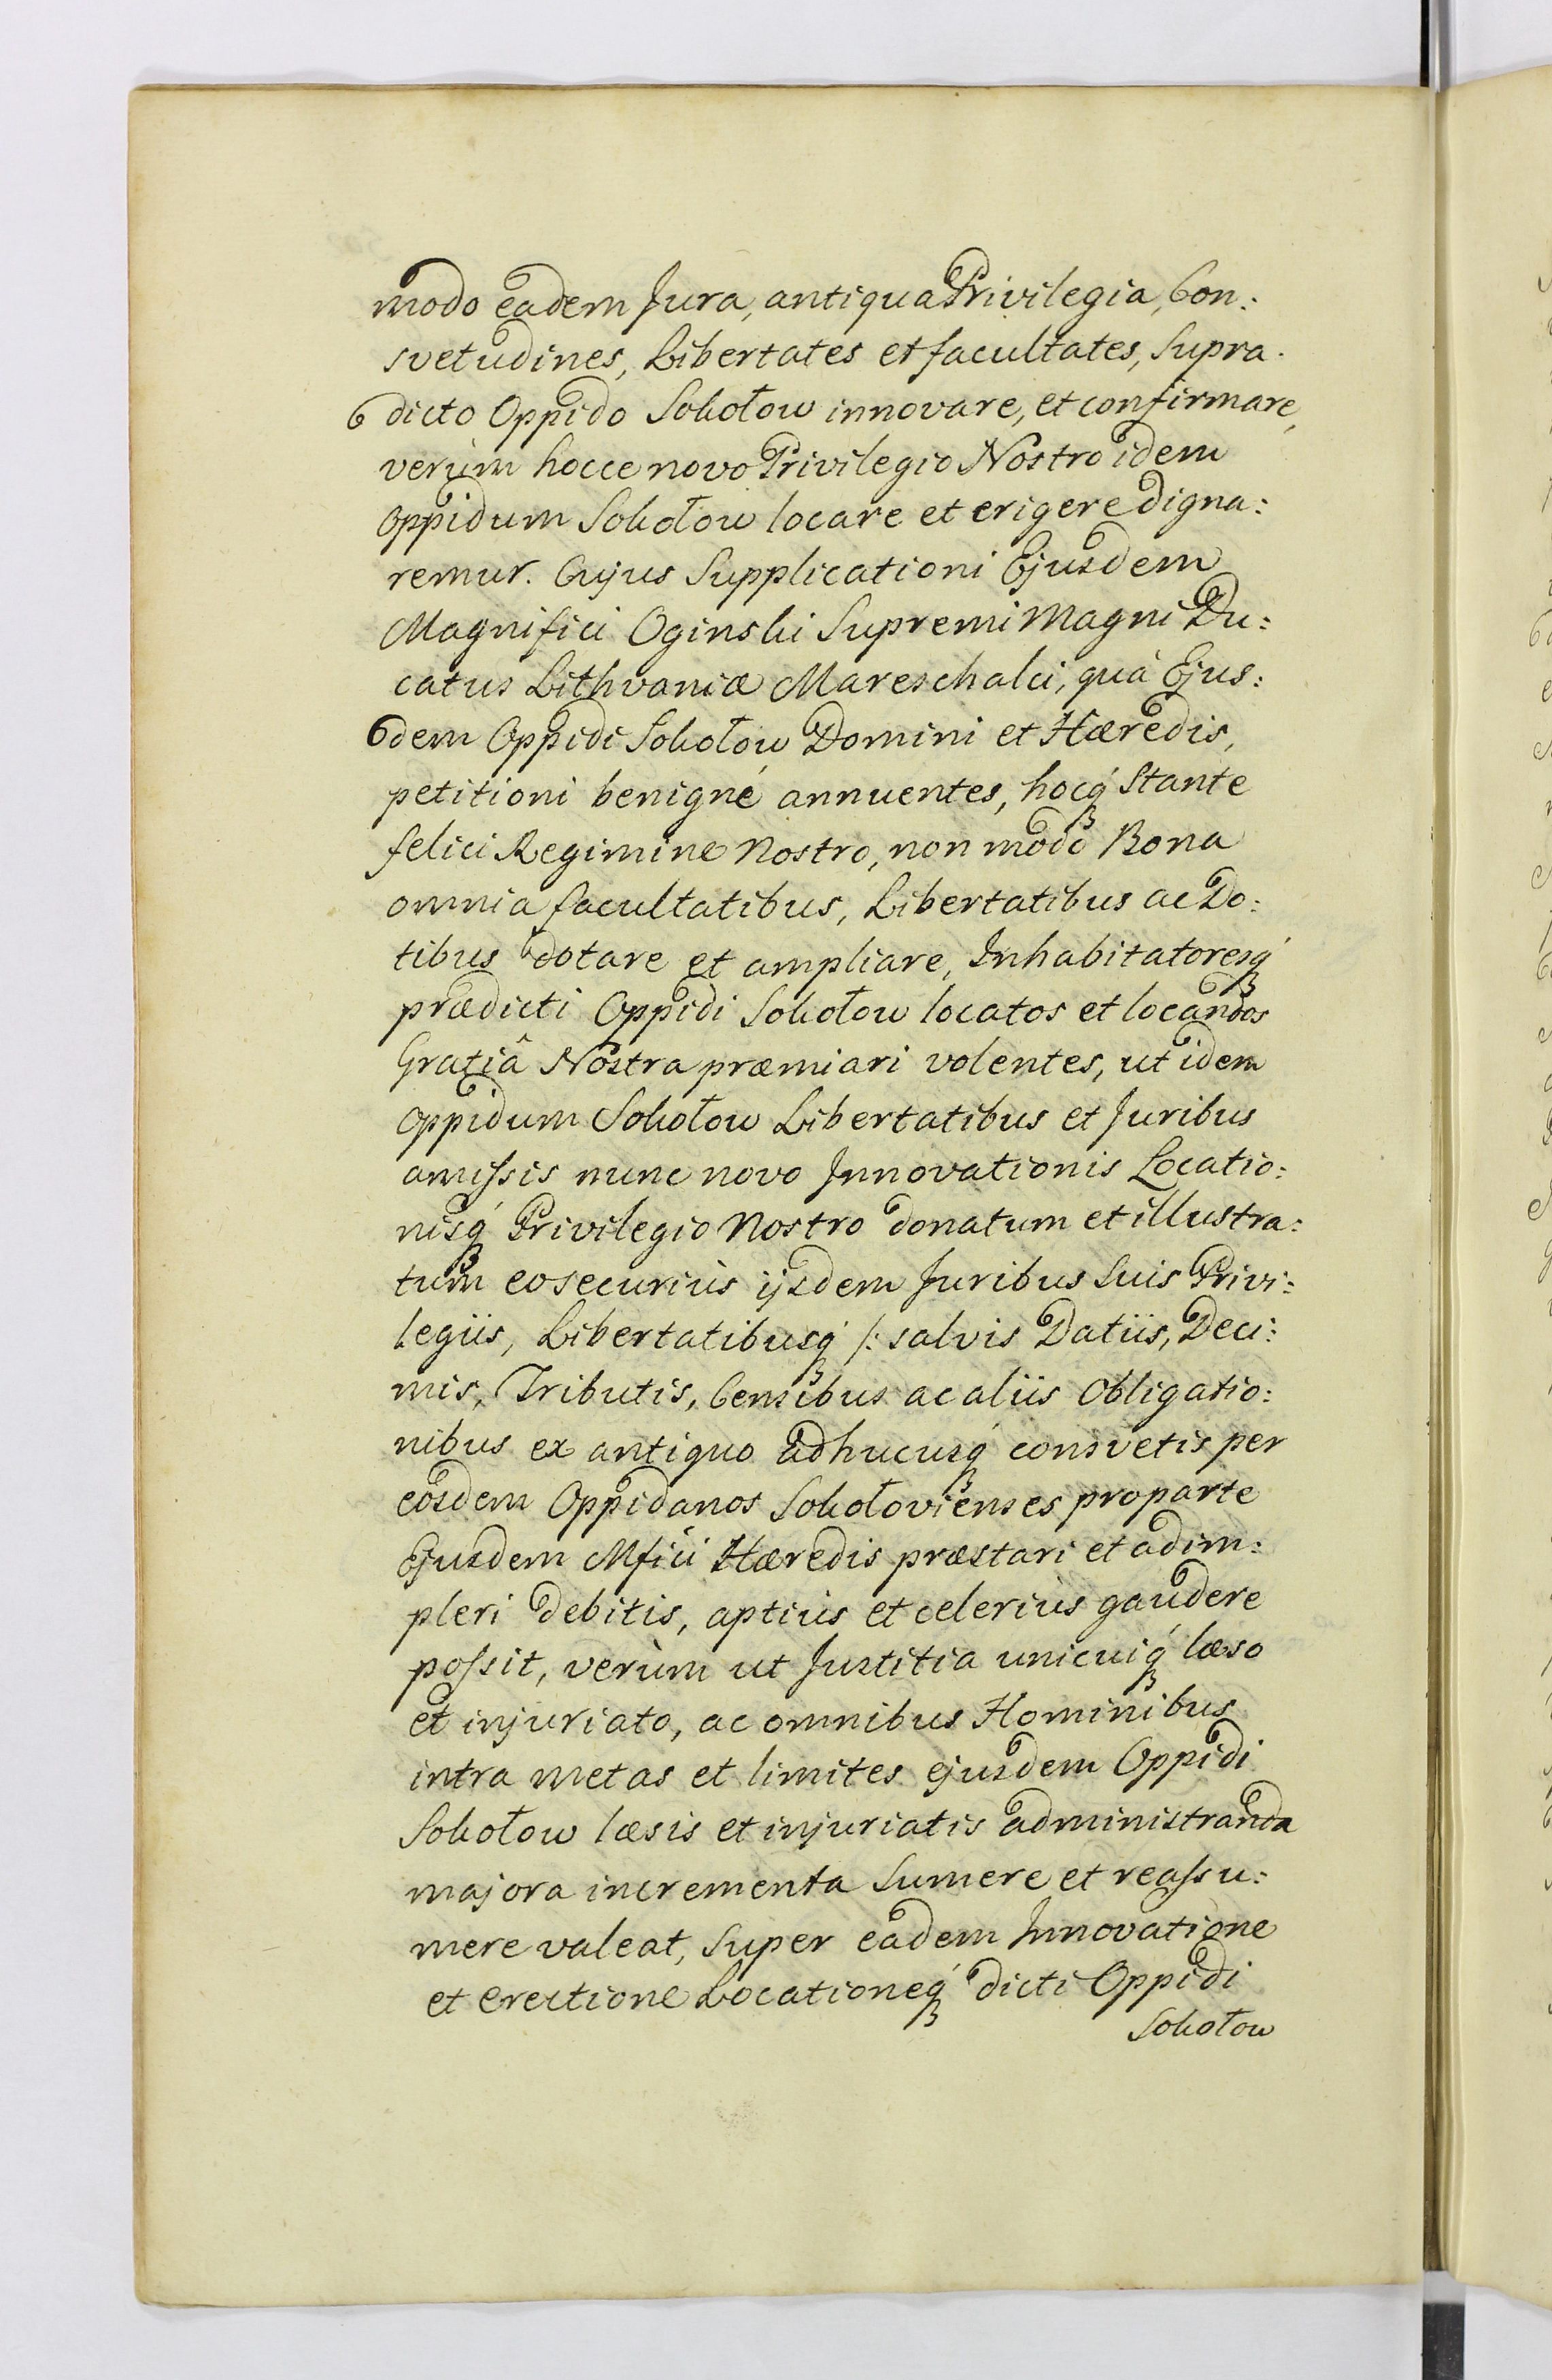 modo eadem Jura, antiqua Privilegia, Con:
svetudines, Libertates et facultates, Supra
dicto Oppido Sokołow innovare, et confirmare,
verùm hocce novo Privilegio Nostro idem
oppidum Sokołow locare et erigere digna:
remur. Cujus Supplicationi Ejusdem
Magnifici Oginski Supremi Magni Du:
catus Lithvaniæ Mareschalci, quà Ejus:
dem Oppidi Sokołow Domini et Hæredis,
petitioni benigné annuentes, hocq́ Stante
felici Regimine Nostro, non modo Bona
omnia facultatibus, Libertatibus ac Do:
tibus dotare et ampliare, Inhabitatoresq́
prædicti Oppidi Sokołow locatos et locandos
Gratiâ Nostra præmiari volentes, ut idem
oppidum Sokołow Libertatibus et Juribus
amissis nunc novo Innovationis Locatio:
nisq́ Privilegio Nostro donatum et illustra:
tum eo securiùs ijsdem Juribus Suis Privi:
legiis, Libertatibusq́ /: salvis Datiis, Deci:
mis, Tributis, Censibus ac aliis Obligatio:
nibus ex antiquo adhucusq́ consvetis per
eosdem Oppidanos Sokołovienses pro parte
Ejusdem Mfici Hæredis præstari et adim:
pleri debitis, aptiùs et celeriùs gaudere
possit, verùm ut Justitia unicuiq́ læso
et injuriato, ac omnibus Hominibus
intra metas et limites ejusdem Oppidi
Sokołow læsis et injuriatis administranda
majora incrementa Sumere et reassu:
mere valeat, Super eadem Innovatione
et erectione Locationeq́ dicti Oppidi
Sokołow